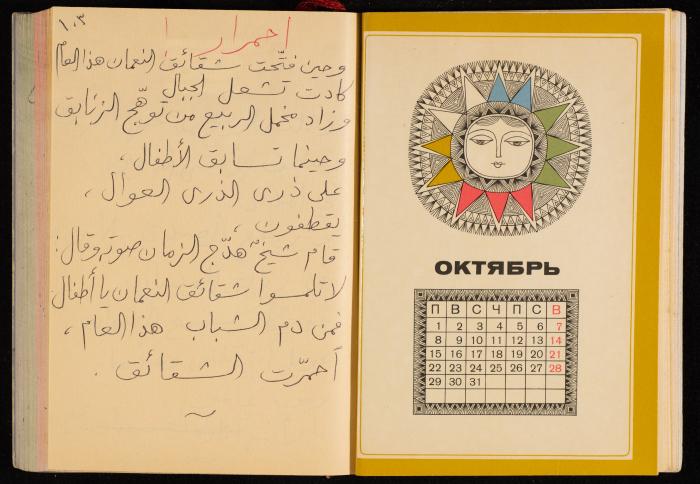 ١٠٣
احمرار
وحين فتّحت شقائق النعمان هذا العام
كادت تشعل الجبال
وزاد مخمل الربيع من توهّج الزنابق
وحينما تسابق الأطفال ،
على ذرى الذرى العوال ،
يقطفون ،
قام شيخٌ هدّج الزمان صوته وقال :
لا تلمسوا شقائق النعمان يا أطفال
فمن دم الشباب هذا العام ،
احمرّت الشقائق .
ОКТЯБРЬ
П В С Ч П С В
1 2 3 4 5 6 7
8 9 10 11 12 13 14
15 16 17 18 19 20 21
22 23 24 25 26 27 28
29 30 31